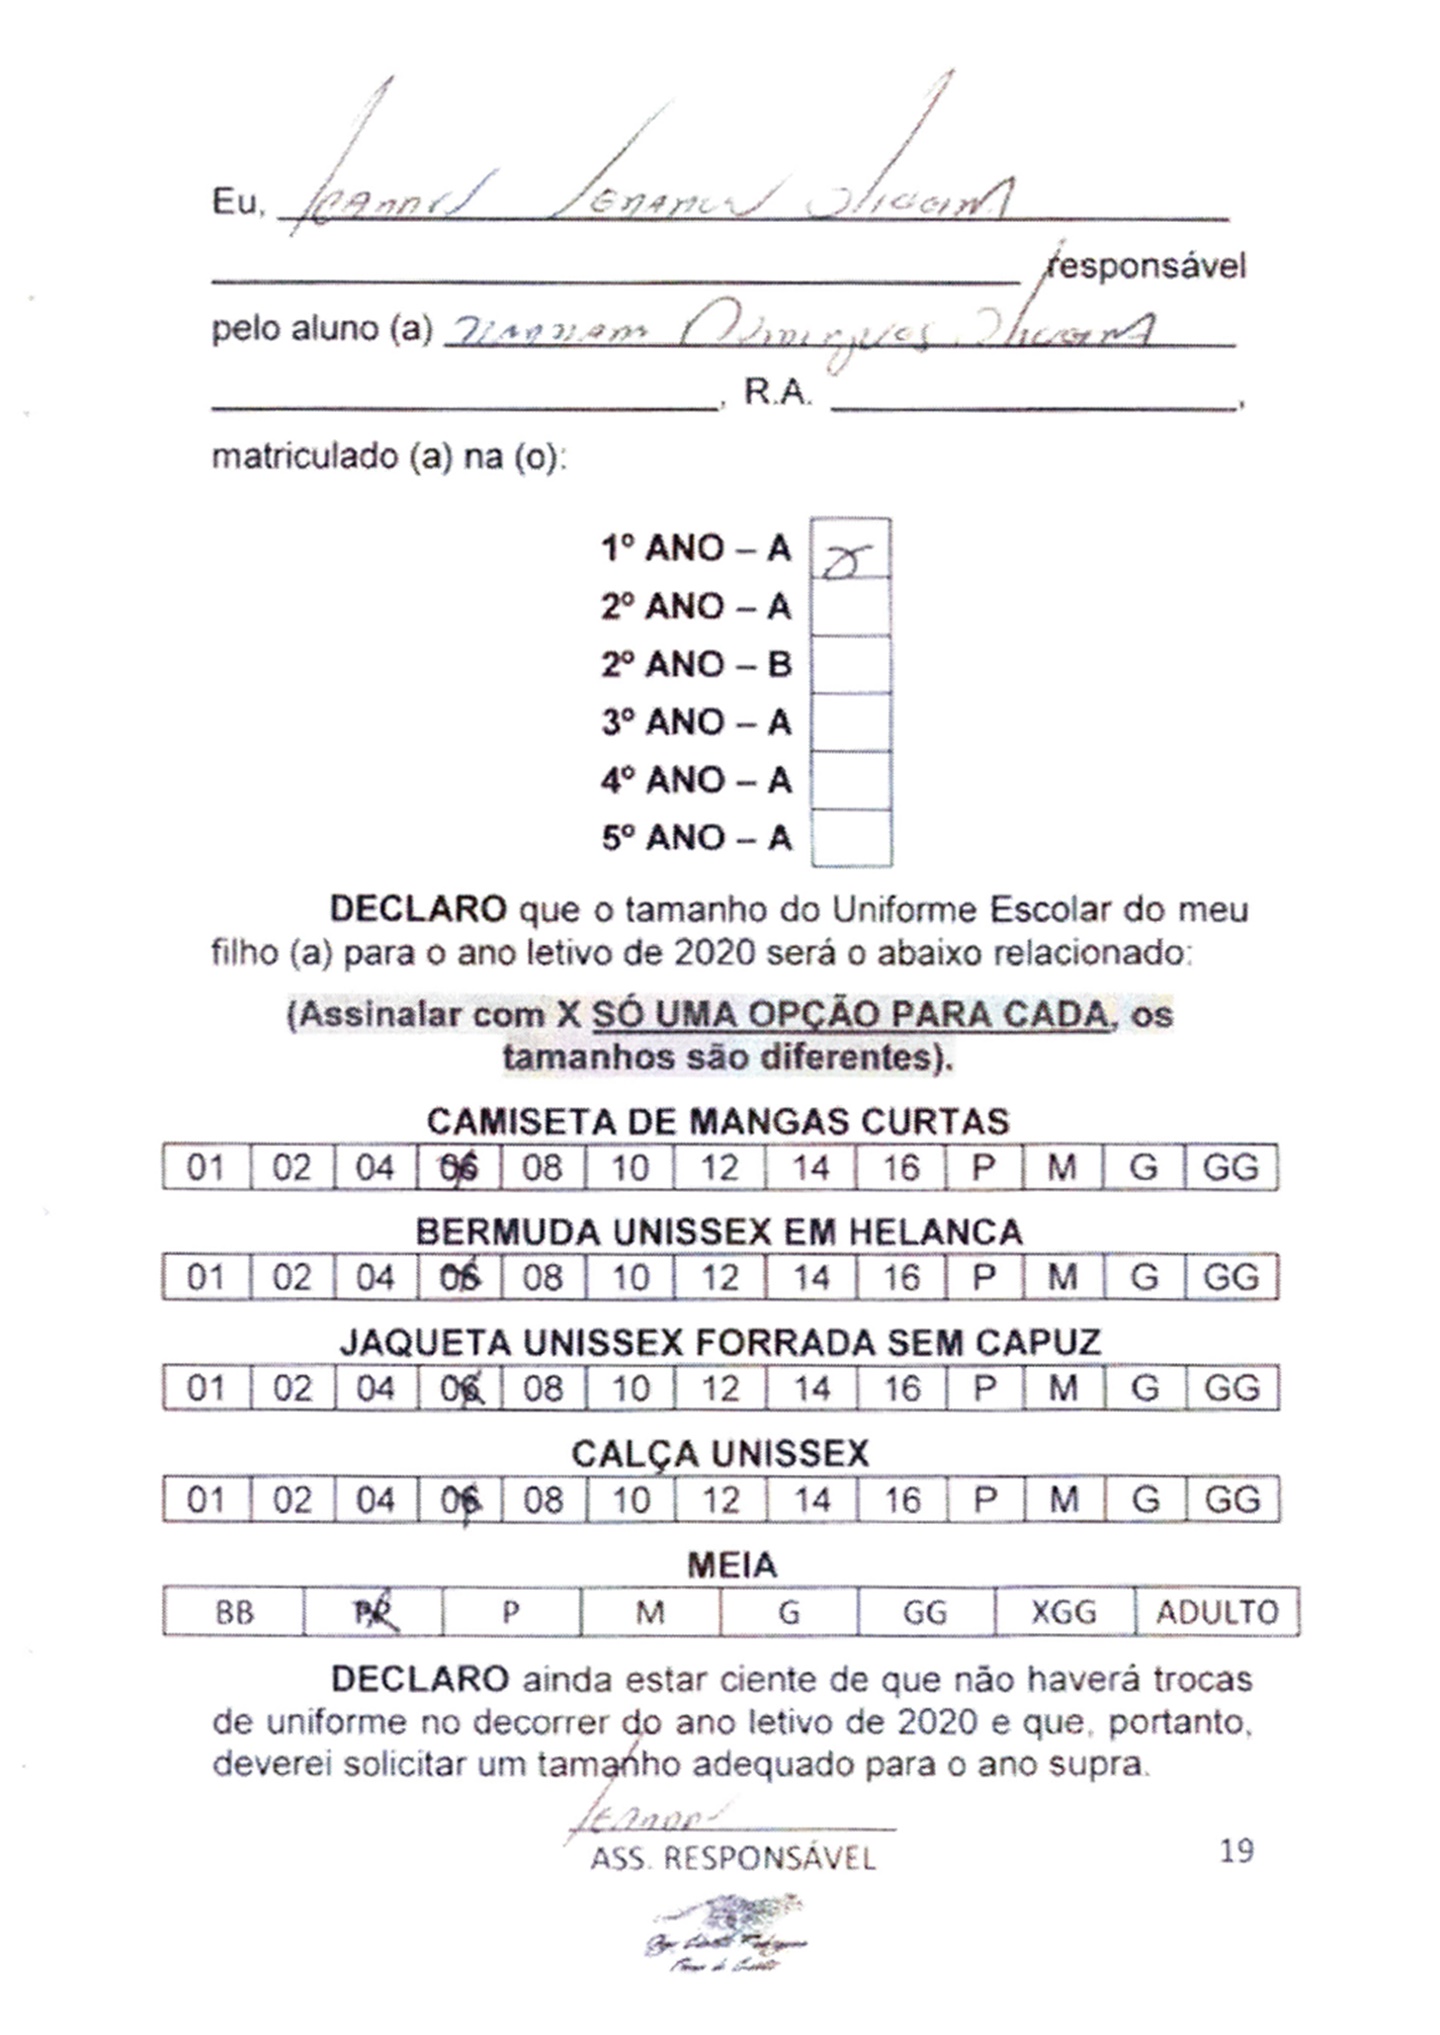 Eu,
responsável
pelo aluno (a) Oliveira
, R.A. ,
matriculado (a) na (o):
1º ANO – A X
2º ANO – A
2º ANO – B
3º ANO – A
4º ANO – A
5º ANO – A
DECLARO que o tamanho do Uniforme Escolar do meu
filho (a) para o ano letivo de 2020 será o abaixo relacionado:
(Assinalar com X SÓ UMA OPÇÃO PARA CADA, os
tamanhos são diferentes).
CAMISETA DE MANGAS CURTAS
01 02 04 06 08 10 12 14 16 P M G GG
BERMUDA UNISSEX EM HELANCA
01 02 04 06 08 10 12 14 16 P M G GG
JAQUETA UNISSEX FORRADA SEM CAPUZ
01 02 04 06 08 10 12 14 16 P M G GG
CALÇA UNISSEX
01 02 04 06 08 10 12 14 16 P M G GG
MEIA
BB PP P M G GG XGG ADULTO
DECLARO ainda estar ciente de que não haverá trocas
de uniforme no decorrer do ano letivo de 2020 e que, portanto,
deverei solicitar um tamanho adequado para o ano supra.
ASS. RESPONSÁVEL
19